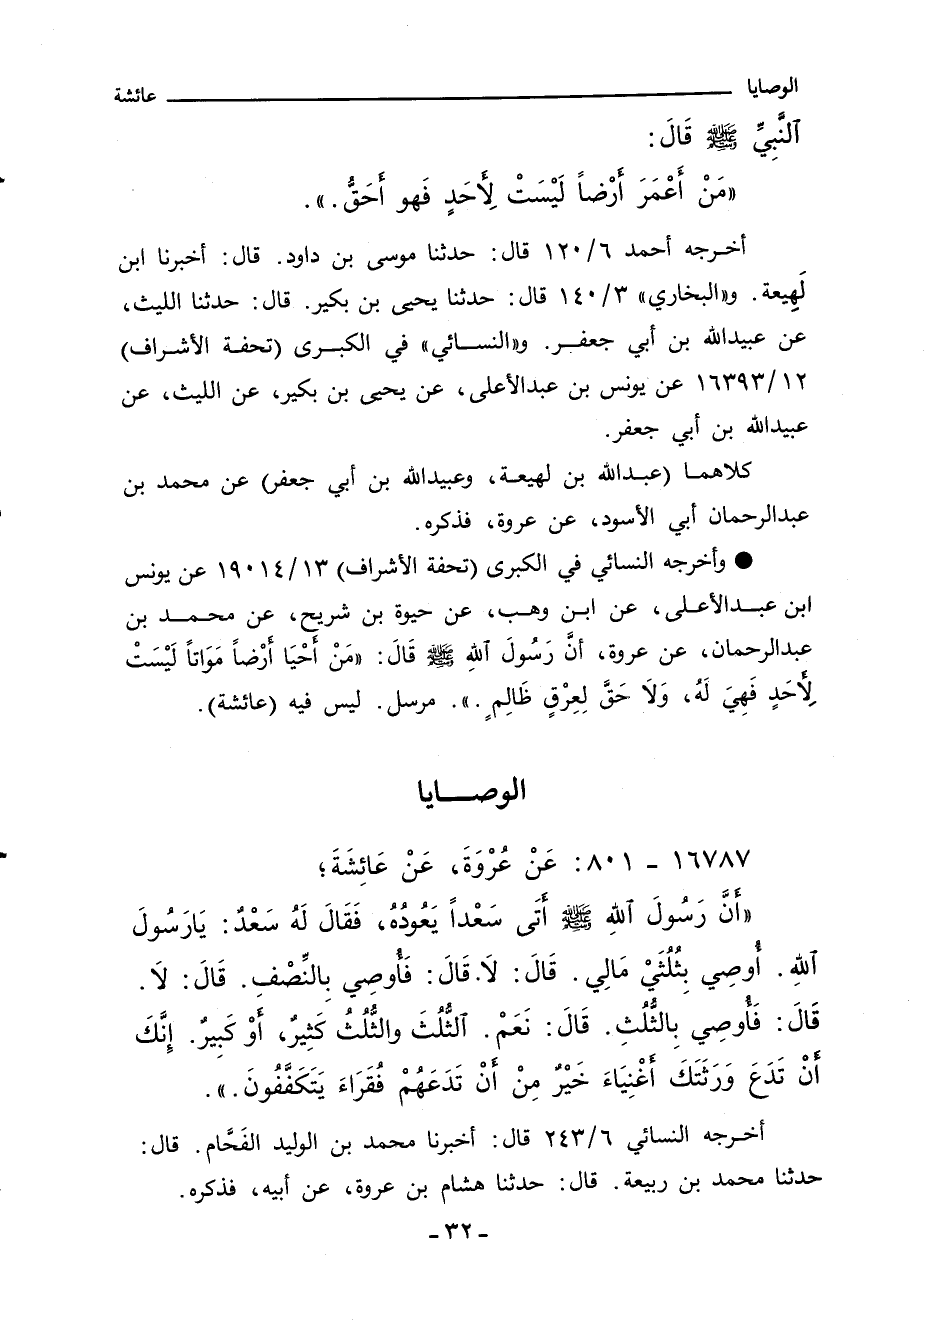 الوصايا ــــــــ عائشة
ٱلنَّبِيِّ ﷺ قَالَ:
«مَنْ أَعْمَرَ أَرْضاً لَيْسَتْ لِأَحَدٍ فَهو أَحَقُّ.».
أخـرجه أحمد ١٢٠/٦ قال: حدثنا موسى بن داود. قال: أخبرنا ابن
لَهِيعة. و«البخاري» ١٤٠/٣ قال: حدثنا يحيى بن بكير. قال: حدثنا الليث،
عن عبيدالله بن أبي جعفـر. و«النسائي» في الكبرى (تحفـة الأشـراف)
١٦٣٩٣/١٢ عن يونس بن عبدالأعلى، عن يحيى بن بكير، عن الليث، عن
عبيدالله بن أبي جعفر.
كلاهمـا (عبـدالله بن لهيعـة، وعبيدالله بن أبي جعفر) عن محمد بن
عبدالرحمان أبي الأسود، عن عروة، فذكره.
● وأخرجه النسائي في الكبرى (تحفة الأشراف) ١٩٠١٤/١٣ عن يونس
ابن عبـدالأعلـى، عن ابـن وهـب، عن حيوة بن شريح، عن محـمـد بن
عبدالرحمان، عن عروة، أنَّ رَسُولَ ٱللهِ ﷺ قَالَ: «مَنْ أَحْيَا أَرْضاً مَوَاتاً لَيْسَتْ
لِأَحَدٍ فَهِيَ لَهُ، وَلَا حَقَّ لِعِرْقٍ ظَالِمٍ.». مرسل. ليس فيه (عائشة).
الوصـــايا
١٦٧٨٧ - ٨٠١: عَنْ عُرْوَةَ، عَنْ عَائِشَةَ؛
«أَنَّ رَسُولَ ٱللهِ ﷺ أَتَى سَعْداً يَعُودُهُ، فَقَالَ لَهُ سَعْدٌ: يَارَسُولَ
ٱللهِ. أُوصِي بِثُلُثَيْ مَالِي. قَالَ: لَا. قَالَ: فَأُوصِي بِالنِّصْفِ. قَالَ: لَا.
قَالَ: فَأُوصِي بِالثُّلُثِ. قَالَ: نَعَمْ. ٱلثُّلُثَ والثُّلُثُ كَثِيرٌ، أَوْ كَبِيرٌ. إِنَّكَ
أَنْ تَدَعَ وَرَثَتَكَ أَغْنِيَاءَ خَيْرٌ مِنْ أَنْ تَدَعَهُمْ فُقَرَاءَ يَتَكَفَّفُونَ.».
أخـرجه النسائي ٢٤٣/٦ قال: أخبرنا محمد بن الوليد الفَحَّام. قال:
حدثنا محمد بن ربيعة. قال: حدثنا هشام بن عروة، عن أبيه، فذكره.
- ٣٢ -